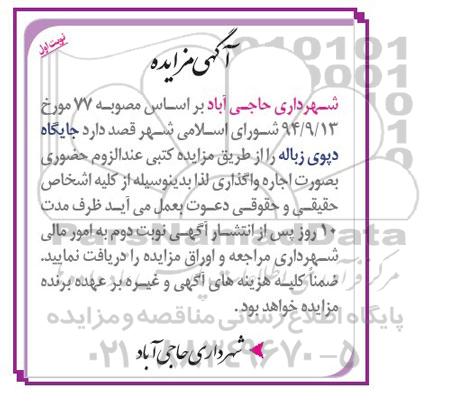 نوبت اول
آگهی مزایده
شهرداری حاجی آباد بر اساس مصوبه ۷۷ مورخ
۹۴/۹/۱۳ شورای اسلامی شهر قصد دارد جایگاه
دپوی زباله را از طریق مزایده کتبی عندالزوم حضوری
بصورت اجاره واگذاری لذا بدینوسیله از کلیه اشخاص
حقیقی و حقوقی دعوت بعمل می آید ظرف مدت
۱۰ روز پس از انتشار آگهی نوبت دوم به امور مالی
شهرداری مراجعه و اوراق مزایده را دریافت نمایید.
ضمناً کلیه هزینه های آگهی و غیره بر عهده برنده
مزایده خواهد بود.
پایگاه اطلاع رسانی مناقصه و مزایده
شهرداری حاجی آباد
۰۲۱-۸۸۳۴۹۶۷۰-۵